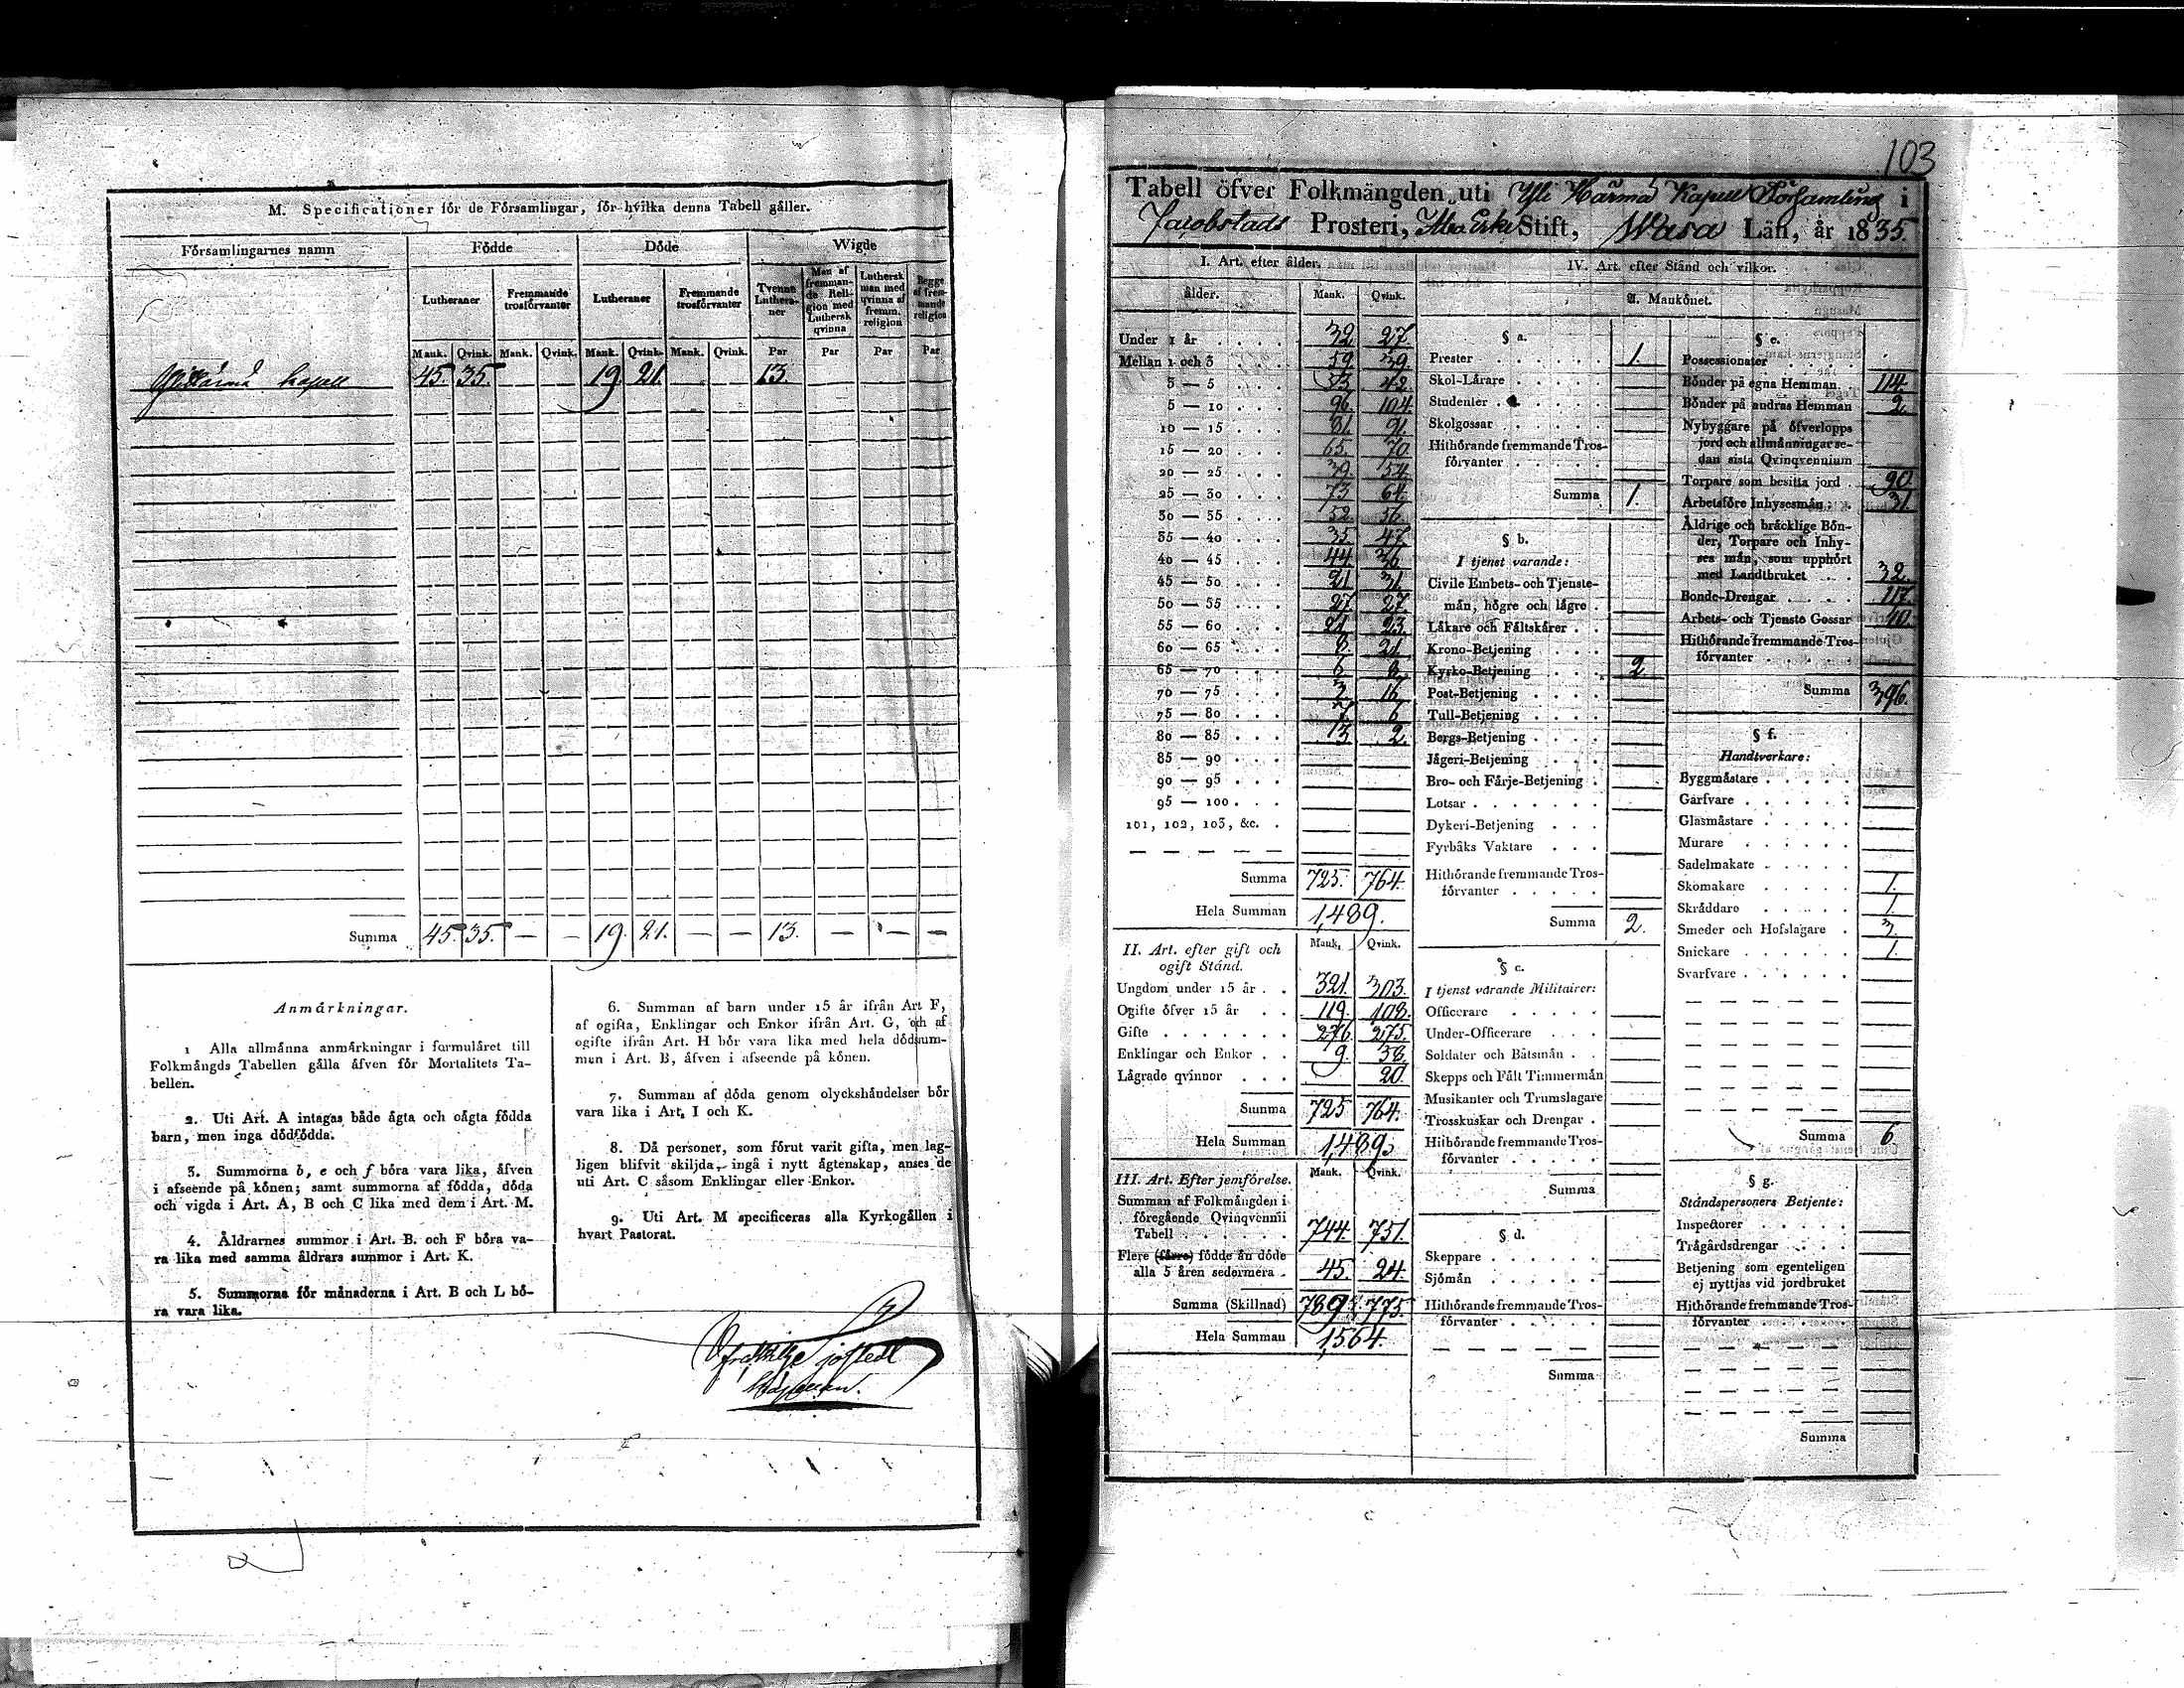 M. Specificationer för de Församlingar, för hvilka denna Tabell gäller.
Församlingarnes namn Födde Döde Wigde
Lutheraner Fremmande trosförvanter Lutheraner Fremmande trosförvanter Tvenne Lutheraner Man af fremmande Religion med Luthersk qvinna Luthersk man med qvinna af fremm. religion Begge af fremmande religion
Mank. Qvink. Mank. Qvink. Mank. Qvink. Mank. Qvink. Par Par Par Par
Kapell 45. 35. 19. 21. 13.
Summa 45. 35. — — 19. 21. — — 13. — — —
Anmärkningar.
1 Alla allmänna anmärkningar i formuläret till
Folkmängds Tabellen gälla äfven för Mortalitets Ta-
bellen.
2. Uti Art. A intagas både ägta och oägta födda
barn, men inga dödfödda.
3. Summorna b, e och f böra vara lika, äfven
i afseende på könen; samt summorna af födda, döda
och vigda i Art. A, B och C lika med dem i Art. M.
4. Åldrarnes summor i Art. B. och F böra va-
ra lika med samma åldrars summor i Art. K.
5. Summorna för månaderna i Art. B och L bö-
ra vara lika.
6. Summan af barn under 15 år ifrån Art F,
af ogifta, Enklingar och Enkor ifrån Art. G, och af
ogifte ifrån Art. H bör vara lika med hela dödsum-
man i Art. B, äfven i afseende på könen.
7. Summan af döda genom olyckshändelser bör
vara lika i Art. I och K.
8. Då personer, som förut varit gifta, men lag-
ligen blifvit skiljda, ingå i nytt ägtenskap, anses de
uti Art. C såsom Enklingar eller Enkor.
9. Uti Art. M specificeras alla Kyrkogällen i
hvart Pastorat.
103
Tabell öfver Folkmängden uti Yli Härmä Kapell Församling i
Jacobstads Prosteri, Åbo Erke Stift, Wasa Län, år 1835.
I. Art. efter ålder.
ålder. Mank. Qvink.
Under 1 år 32 27.
Mellan 1 och 3 59 39.
3 — 5 53 42.
5 — 10 96. 104.
10 — 15 81. 91.
15 — 20 65. 70.
20 — 25 39. 54.
25 — 30 73 64.
30 — 35 52. 56.
35 — 40 35. 47.
40 — 45 44. 36.
45 — 50 21. 31.
50 — 55 27. 27.
55 — 60 21. 23.
60 — 65 8. 21.
65 — 70 8.
70 — 75 3. 16.
75 — 80 7. 6.
80 — 85 13. 2.
85 — 90
90 — 95
95 — 100
101, 102, 103, &c.
Summa 725. 764.
Hela Summan 1,489.
II. Art. efter gift och
ogift Stånd.
Mank. Qvink.
Ungdom under 15 år 321. 303.
Ogifte öfver 15 år 119. 108.
Gifte 276. 275.
Enklingar och Enkor 9. 58.
Lägrade qvinnor 20.
Summa 725 764.
Hela Summan 1,489.
III. Art. Efter jemförelse.
Mank. Qvink.
Summan af Folkmängden i
föregående Qvinqvennii
Tabell 744. 751.
Flere (färre) födde än döde
alla 5 åren sedermera 45. 24.
Summa (Skillnad) 789. 775.
Hela Summan 1,564.
IV. Art. efter Stånd och vilkor.
A. Mankönet.
§ a.
Prester 1.
Skol-Lärare
Studenter
Skolgossar
Hithörande fremmande Tros-
förvanter
Summa 1.
§ b.
I tjenst varande:
Civile Embets- och Tjenste-
män, högre och lägre
Läkare och Fältskärer
Krono-Betjening
Kyrko-Betjening 2.
Post-Betjening
Tull-Betjening
Bergs-Betjening
Jägeri-Betjening
Bro- och Färje-Betjening
Lotsar
Dykeri-Betjening
Fyrbåks Vaktare
Hithörande fremmande Tros-
förvanter
Summa 2.
§ c.
I tjenst varande Militairer:
Officerare
Under-Officerare
Soldater och Båtsmän
Skepps och Fält Timmermän
Musikanter och Trumslagare
Trosskuskar och Drengar
Hithörande fremmande Tros-
förvanter
Summa
§ d.
Skeppare
Sjömän
Hithörande fremmande Tros-
förvanter
Summa
§ e.
Possessionater
Bönder på egna Hemman 114.
Bönder på andras Hemman 2.
Nybyggare på öfverlopps
jord och allmänningar se-
dan sista Qvinqvennium
Torpare som besitta jord 90.
Arbetsföre Inhysesmän 31.
Åldrige och bräcklige Bön-
der, Torpare och Inhy-
ses män, som upphört
med Landtbruket 32.
Bonde-Drengar 117.
Arbets- och Tjenste Gossar 10.
Hithörande fremmande Tros-
förvanter
Summa 396.
§ f.
Handtverkare:
Byggmästare
Garfvare
Glasmästare
Murare
Sadelmakare
Skomakare 1.
Skräddare 1.
Smeder och Hofslagare 3.
Snickare 1.
Svarfvare
Summa 6
§ g.
Ståndspersoners Betjente:
Inspectorer
Trägårdsdrengar
Betjening som egenteligen
ej nyttjas vid jordbruket
Hithörande fremmande Tros-
förvanter
Summa